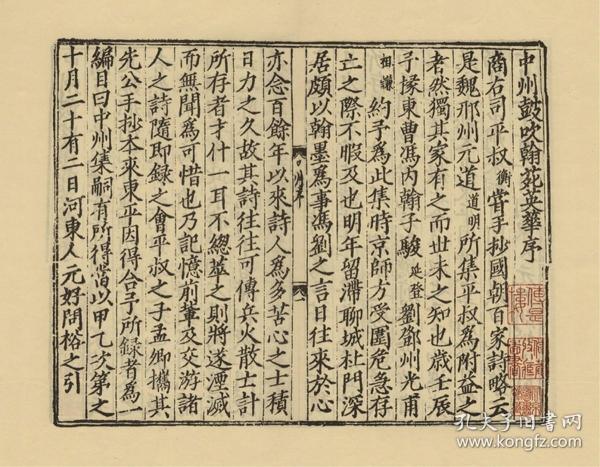 中州鼓吹翰苑英華序
商右司平叔衡嘗手抄國朝百家詩略云
是魏邢州元道道明所集平叔爲附益之
者然獨其家有之而世未之知也歲壬辰
予掾東曹馮内翰子駿延登劉鄧州光甫
祖謙約予爲此集時京師方受圍危急存
亡之際不暇及也明年留滯聊城杜門深
居頗以翰墨爲事馮劉之言日往來於心
亦念百餘年以來詩人爲多苦心之士積
日力之久故其詩往往可傳兵火散亡計
所存者才什一耳不總萃之則將遂湮滅
而無聞爲可惜也乃記憶前輩及交游諸
人之詩隨即錄之會平叔之子孟卿攜其
先公手抄本來東平因得合予所錄者爲一
編目曰中州集嗣有所得當以甲乙次第之
十月二十有二日河東人元好問裕之引
孔夫子旧书网
www.kongfz.com